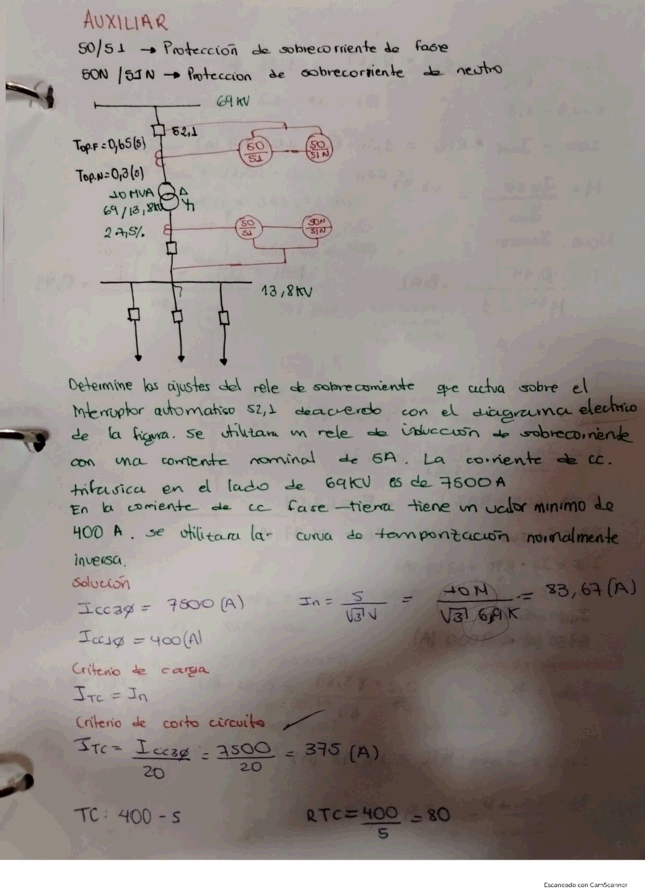 AUXILIAR
50/51 → Protección de sobrecorriente de fase
50N/51N → Proteccion de sobrecorriente de neutro
69 KV
52,1
Top.F = 0,65(s)
50/51
50/51N
Top.N = 0,3(s)
10 MVA Δ
69/13,8kV
27,5%
50/51
50N/51N
13,8KV
Determine los ajustes del rele de sobrecorriente que actua sobre el
Interruptor automatico 52,1 deacuerdo con el diagrama electrico
de la figura. se utilizara un rele de inducción de sobrecorriende
con una corriente nominal de 5A. La corriente de cc.
trifasica en el lado de 69KV es de 7500A
En la corriente de cc fase-tierra tiene un valor minimo de
400 A. se utilizara la curva de temporización normalmente
inversa.
Solución
Icc3ϕ = 7500 (A) In = S/√3 V = 10M/√3 69K = 83,67 (A)
Icc1ϕ = 400(A)
Criterio de carga
ITC = In
Criterio de corto circuito
ITC = Icc3ϕ/20 = 7500/20 = 375 (A)
TC: 400-5 RTC = 400/5 = 80
Escaneado con CamScanner